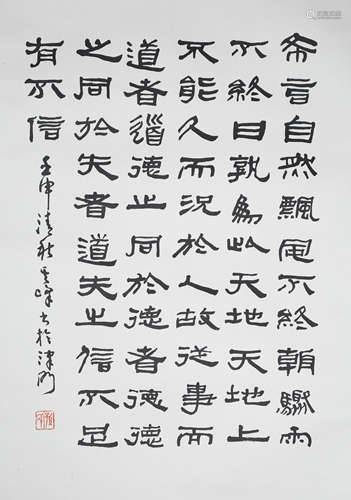 希言自然飄風不終朝驟雨
不終日孰為此天地天地上
不能久而況於人故從事而
道者道德之同於德者德德
之同於失者道失之信不足
有不信
壬申清秋峰书於津门